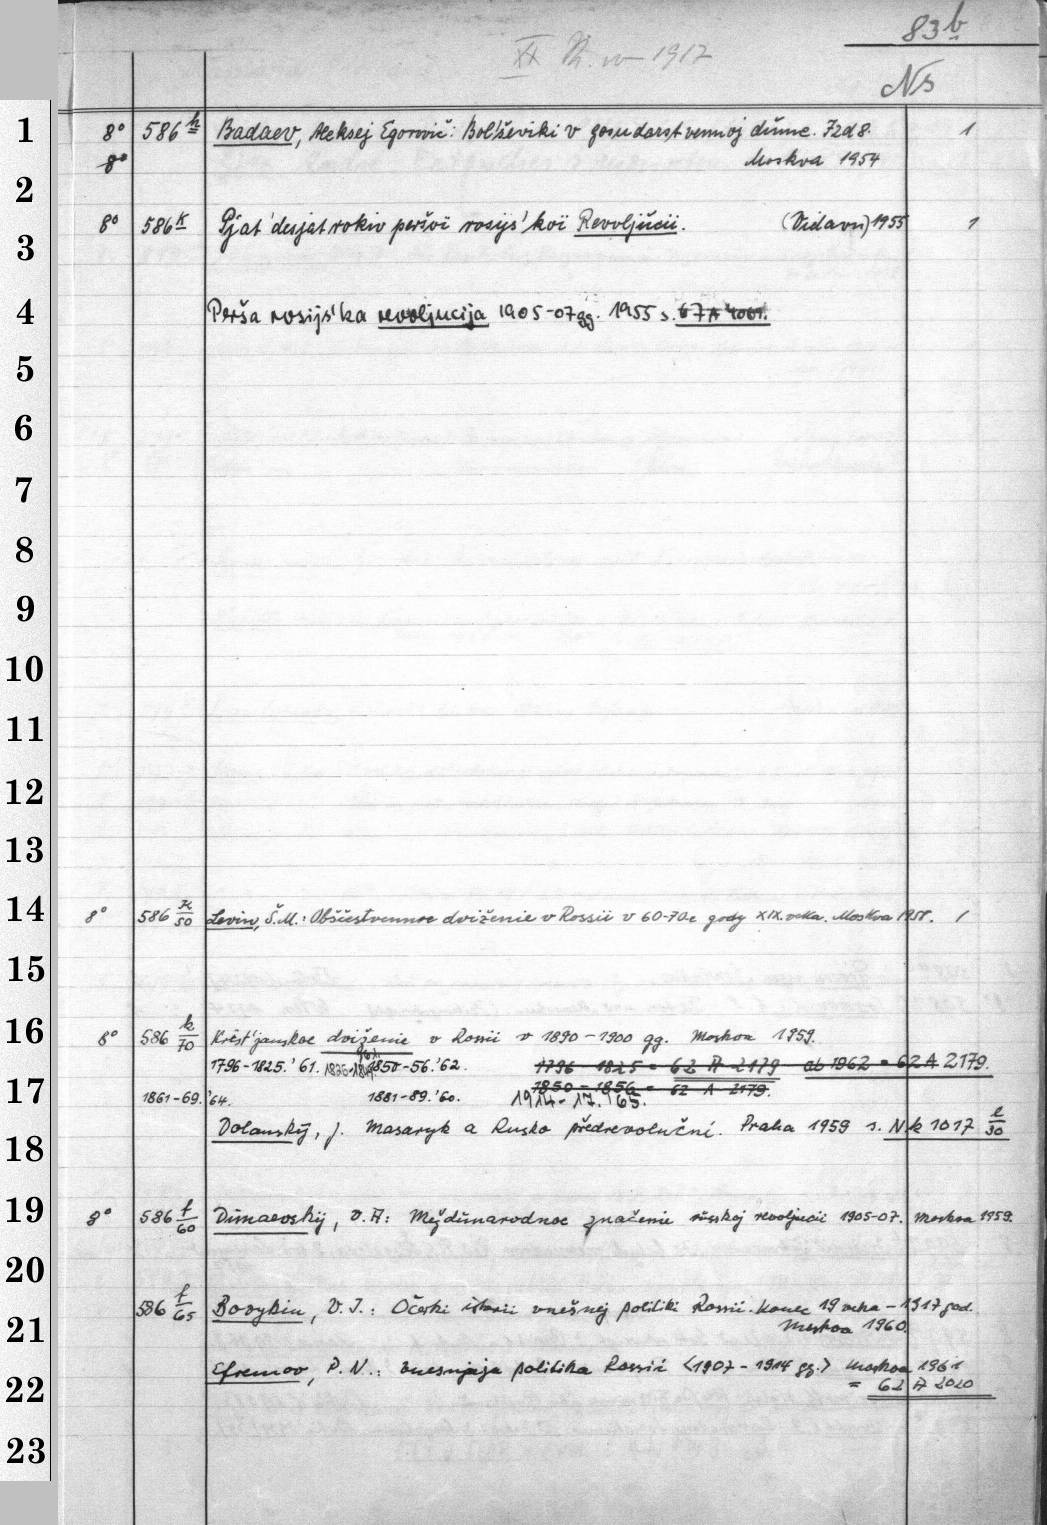 83b
XX 1917
Ns
1 8° 586 h Badaev, Aleksej Egorovič: Bol'ševiki v gosudarstvennoj dume. Izd 8. 1
8° Moskva 1954
2
8° 586 k Pjat'desjat rokiv peršoï rosijs'koï Revoljucii. (Vidavn) 1955 1
3
4 Perša rosijs'ka revoljucija 1905-07 gg. 1955 s. 67 A 4001.
5
6
7
8
9
10
11
12
13
14 8° 586 k/50 Levin, Š.M.: Obščestvennoe dviženie v Rossii v 60-70e gody XIX. veka. Moskva 1958. 1
15
16 8° 586 k/70 Krest'janskoe dviženie v Rossii v 1890-1900 gg. Moskva 1959.
1796-1825.'61. 1826-1849 1850-56.'62. 1796-1825 = 62 A 2179 ab 1962 = 62 A 2179.
1850-1856 = 62 A 2179.
17 1861-69.'64. 1881-89.'60. 1914-17.'65.
Dolanský, J. Masaryk a Rusko předrevoluční. Praha 1959 s. Nk 1017 l/30
18
19 8° 586 f/60 Dimaevskij, V.A: Meždunarodnoe značenie russkoj revoljucii 1905-07. Moskva 1959.
20
586 f/65 Bovykin, V.I.: Očerki istorii vnešnej politiki Rossii. Konec 19 veka - 1917 god.
21 Moskva 1960
Efremov, P.N.: vnesnjaja politika Rossii <1907-1914 gg.> Moskva 1961
22 = 62 A 2020
23